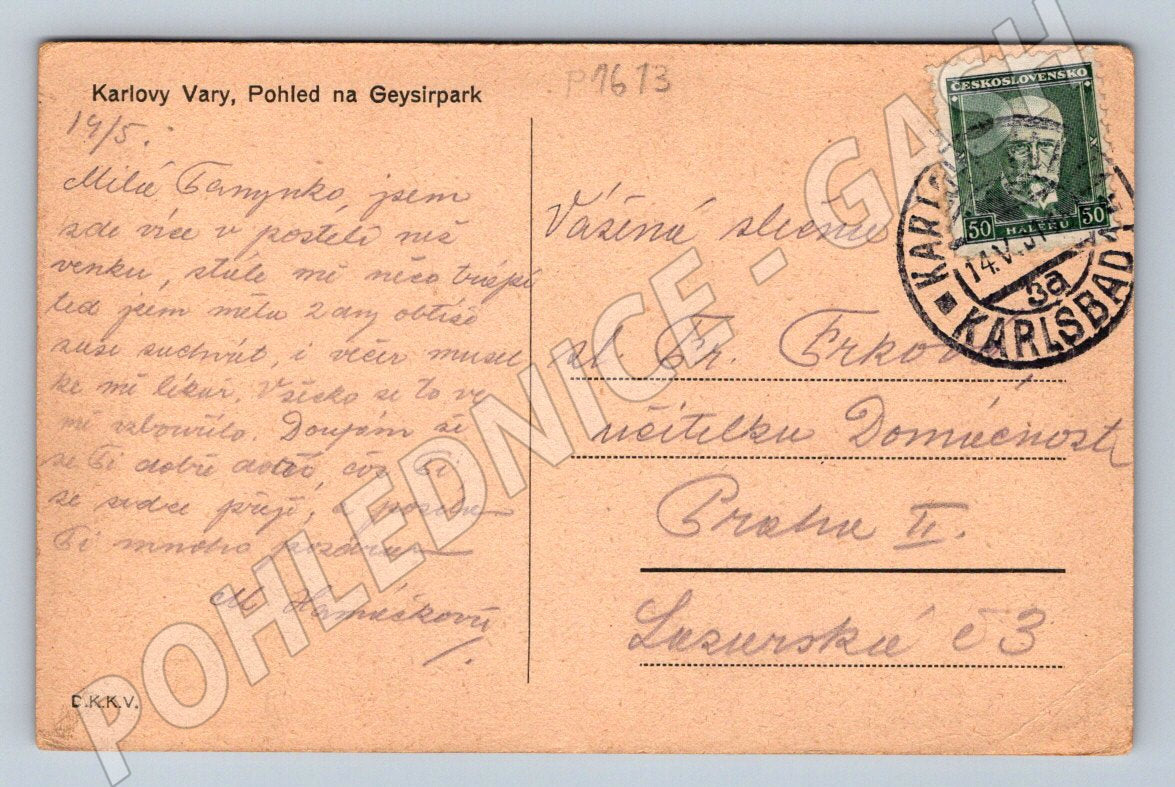 Karlovy Vary, Pohled na Geysirpark
P1613
14/5.
Milá Fanynko, jsem
zde více v posteli než
venku, stále mě něco trápí
teď jsem měla 2 dny obtíže
zase i večer musel
ke mě lékař. Všecko se to ve
mě vzbouřilo. Doufám že
se Ti dobře daří, což Ti
se srdce přeji, a
Ti mnoho
M
D.K.K.V.
Vážená slečna
sl. Fr. Frková
učitelka Domácnosti
Praha II.
Lazarská č 3
ČESKOSLOVENSKO
50 HALÉŘŮ 50
KARLOVY VARY
14.V.31
3a
KARLSBAD
POHLEDNICE - GASH